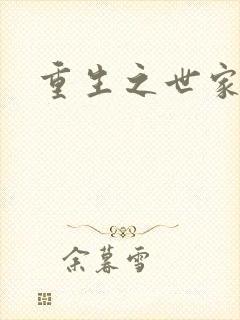 重生之世家
余暮雪